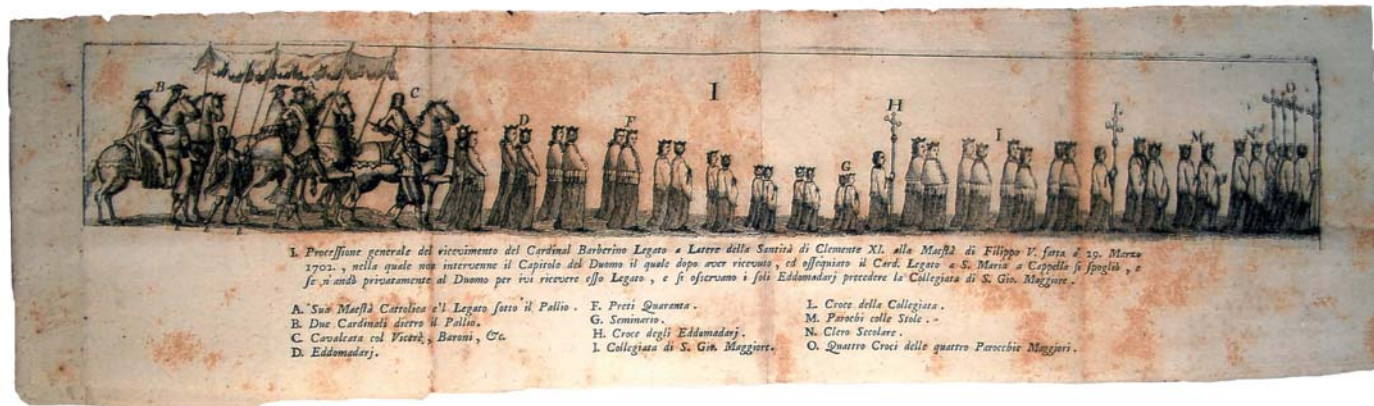 B C D F I G H I L M N O
I. Processione generale del ricevimento del Cardinal Barberino Legato a Latere della Santità di Clemente XI. alla Maestà di Filippo V. fatta à 29. Marzo
1702., nella quale non intervenne il Capitolo del Duomo il quale dopo aver ricevuto, ed ossequiato il Card. Legato a S. Maria a Cappella si spogliò, e
se n'andò privatamente al Duomo per ivi ricevere esso Legato, e si osservano i soli Eddomadarj precedere la Collegiata di S. Gio. Maggiore.
A. Sua Maestà Cattolica e'l Legato sotto il Pallio.
B. Due Cardinali dietro il Pallio.
C. Cavalcata col Vicerè, Baroni, &c.
D. Eddomadarj.
F. Preti Quaranta.
G. Seminario.
H. Croce degli Eddomadarj.
I. Collegiata di S. Gio. Maggiore.
L. Croce della Collegiata.
M. Parochi colle Stole.
N. Clero Secolare.
O. Quattro Croci delle quattro Parocchie Maggiori.